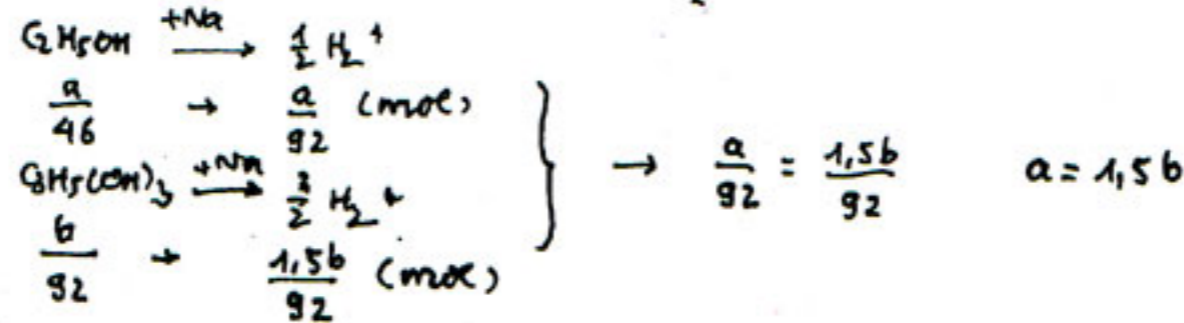 C2H5OH +Na → 1/2 H2↑
a/46 → a/92 (mol)
C3H5(OH)3 +Na → 3/2 H2↑
b/92 → 1,5b/92 (mol)
→ a/92 = 1,5b/92 a = 1,5b